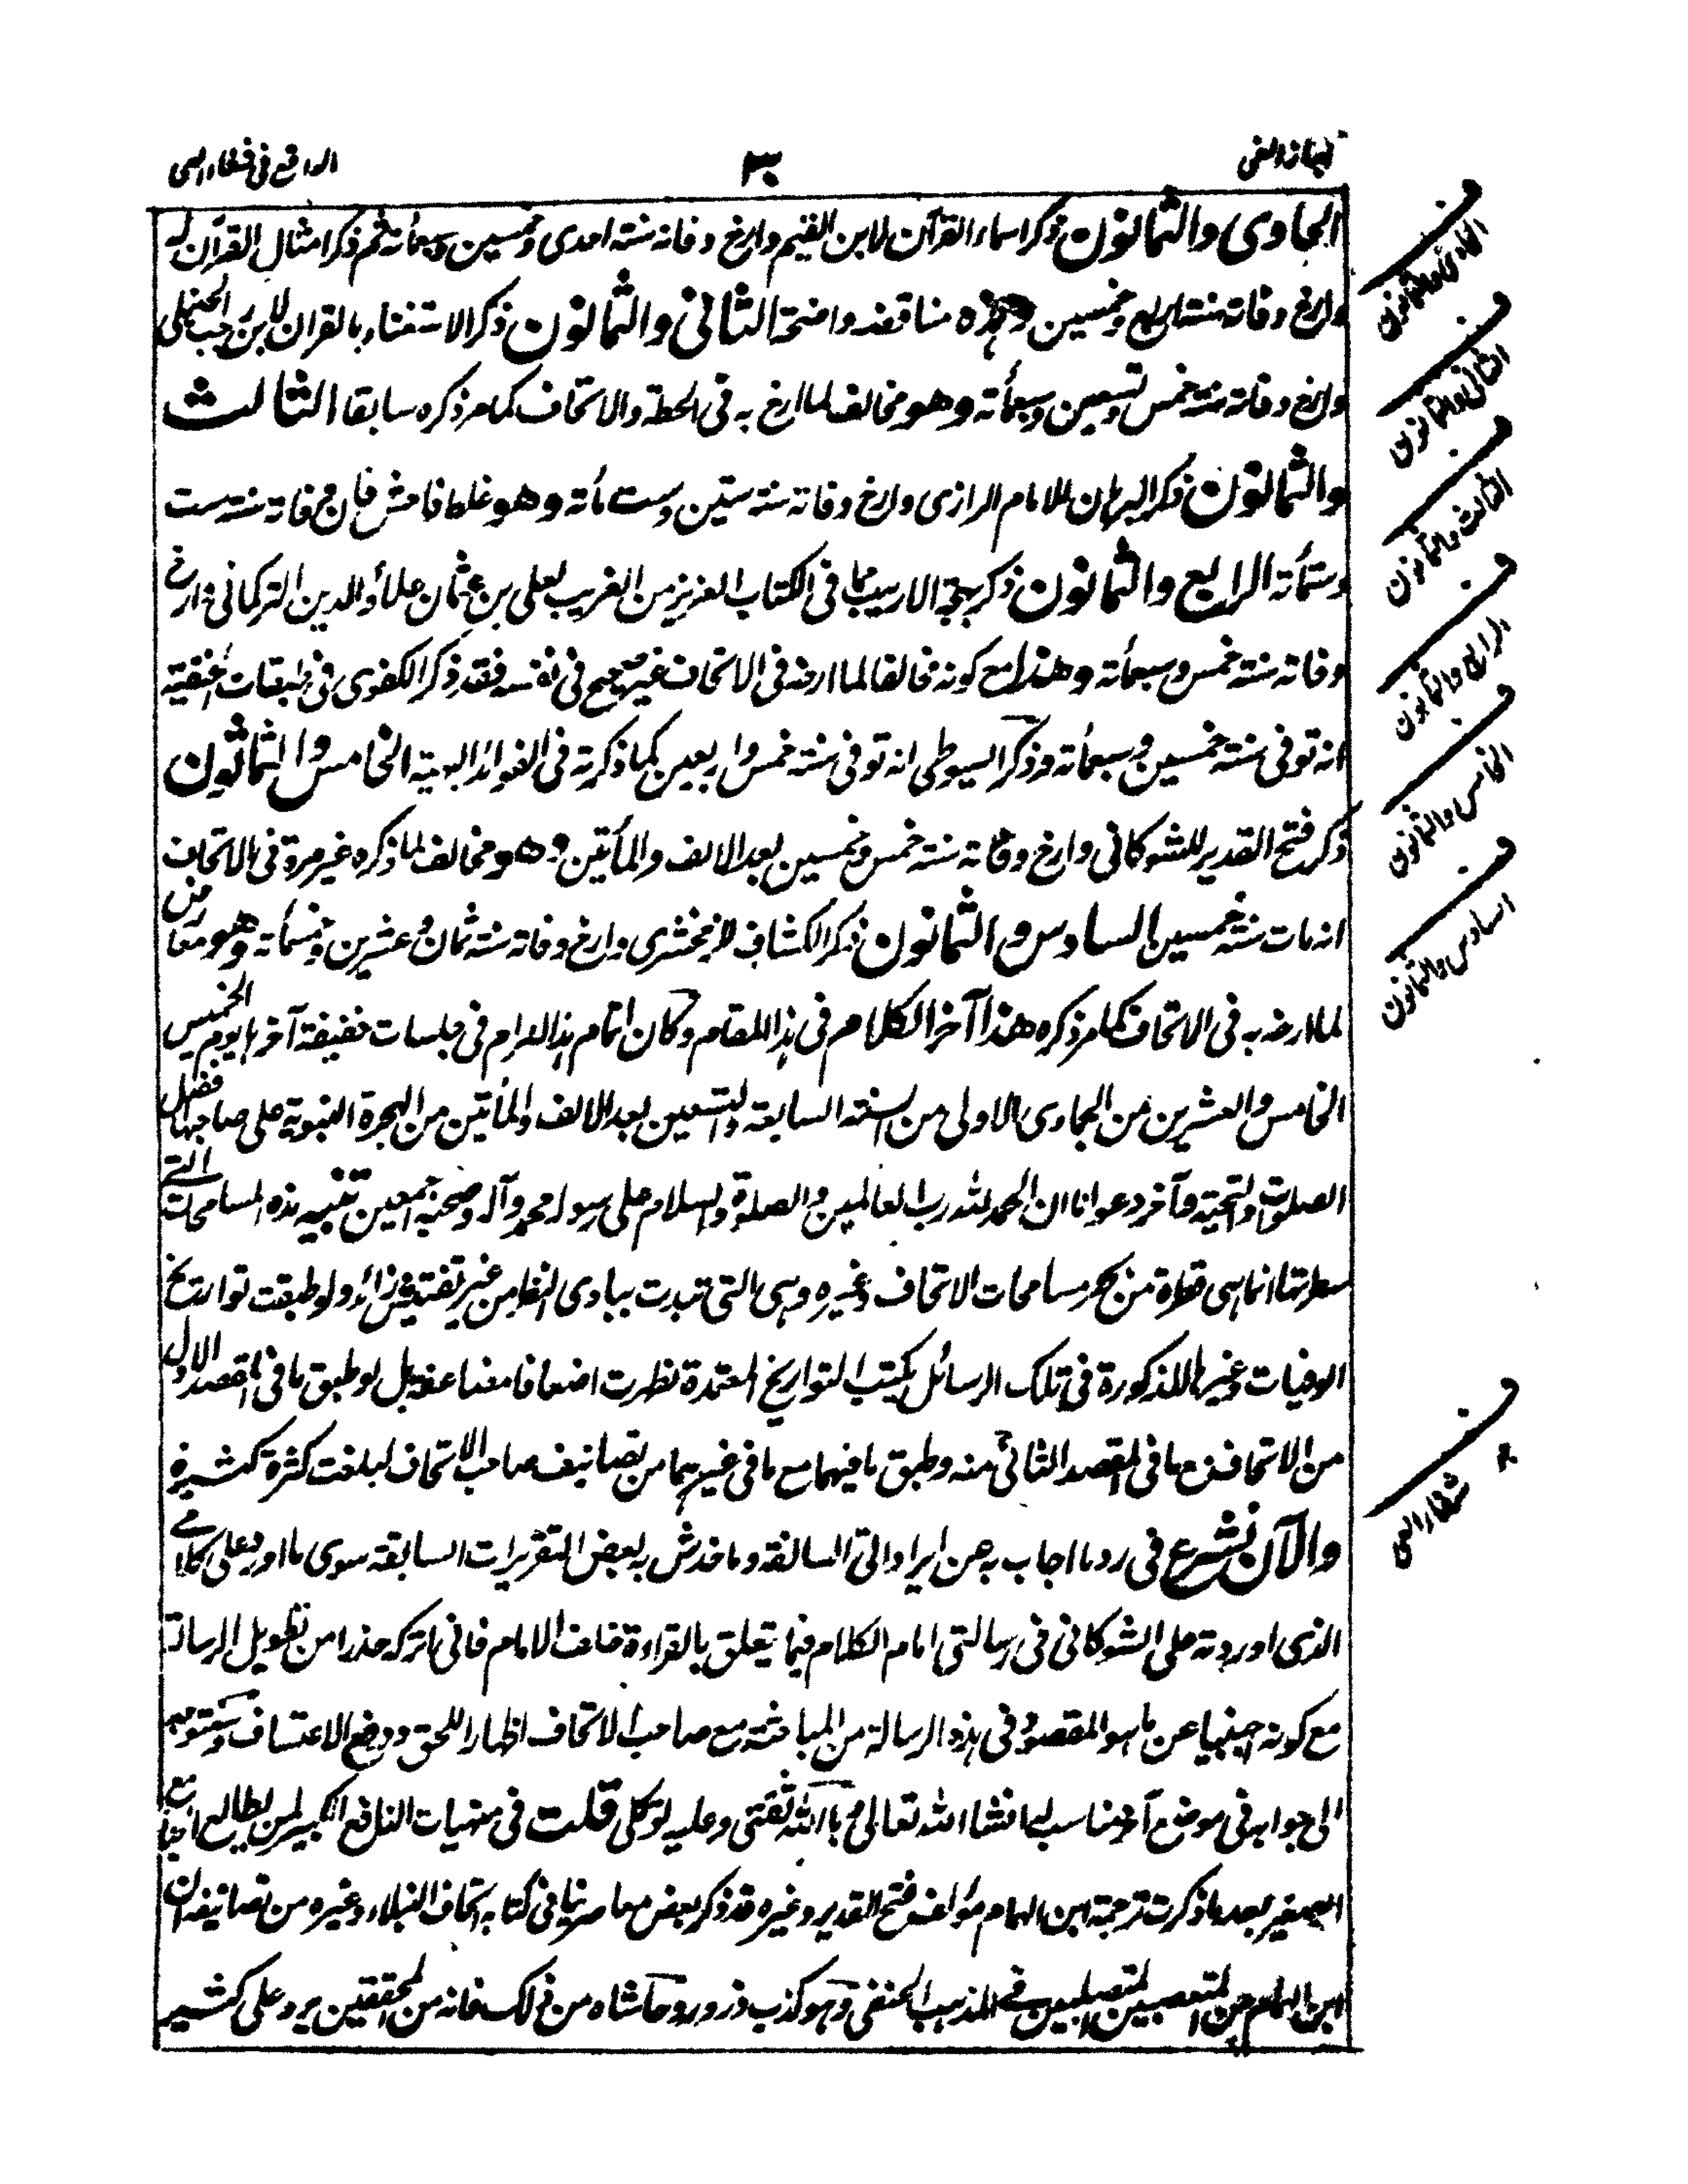 ابراز الغى
٣٠
الواقع فى شفاء العى
الحادى والثمانون ذكر اسماء القرآن لابن القيم وارخ وفاته سنة احدى وخمسين وسبعمأته ثم ذكر امثال القرآن له
وارخ وفاته سنة اربع وخمسين وهذه مناقضة واضحة الثانى والثمانون ذكر الاستغناء بالقران لابن رجب الحنبلى
وارخ وفاته سنة خمس وتسعين وسبعمأته وهو مخالف لما ارخ به فى الحطة والاتحاف كما مر ذكره سابقا الثالث
والثمانون ذكر البرهان للامام الرازى وارخ وفاته سنة ستين وست مأته وهو غلط فاحش فان وفاته سنة ست
وستمأته الرابع والثمانون ذكر بهجة الاريب بما فى الكتاب العزيز من الغريب لعلى بن عثمان علاء الدين التركمانى وارخ
وفاته سنة خمس وسبعمأته وهذا مع كونه مخالفا لما ارخه فى الاتحاف غير صحيح فى نفسه فقد ذكر الكفوى فى طبقات الحنفية
انه توفى سنة خمسين وسبعمأته وذكر السيوطى انه توفى سنة خمس واربعين كما ذكرته فى الفوائد البهية الخامس والثمانون
ذكر فتح القدير للشوكانى وارخ وفاته سنة خمس وخمسين بعد الالف والمأتين وهو مخالف لما ذكره غير مرة فى الاتحاف
انه مات سنة خمسين السادس والثمانون ذكر الكشاف للزمخشرى وارخ وفاته سنة ثمان وعشرين وخمسمأته وهو معارض
لما ارخه به فى الاتحاف كما مر ذكره هذا آخر الكلام فى هذا المقام وكان اتمام هذا المرام فى جلسات خفيفة آخرها يوم الخميس
الخامس والعشرين من الجمادى الاولى من السنة السابعة والتسعين بعد الالف والمأتين من الهجرة النبوية على صاحبها افضل
الصلوت والتحية وآخر دعوانا ان الحمد لله رب العالمين والصلوة والسلام على رسوله محمد وآله وصحبه اجمعين تنبيه هذه المسامحات التى
سطرتها انما هى قطرة من بحر مسامحات الاتحاف وغيره وهى التى تبدت ببادى النظر من غير تفتيش زائد ولو طبقت تواريخ
الوفيات وغيرها المذكورة فى تلك الرسائل بكتب التواريخ المعتمدة لظهرت اضعافا مضاعفة بل لو طبق ما فى المقصد الاول
من الاتحاف مع ما فى المقصد الثانى منه وطبق ما فيهما مع ما فى غيرهما من تصانيف صاحب الاتحاف لبلغت كثرة كثيرة
والآن نشرع فى رد ما اجاب به عن ايراداتى السالفة وما خدش به بعض التقريرات السابقة سوى ما اورد على كلامى
الذى اوردته على الشوكانى فى رسالتى امام الكلام فيما يتعلق بالقراءة خلف الامام فانى اتركه حذرا من تطويل الرسالة
مع كونه اجنبيا عن ما هو المقصود فى هذه الرسالة من المباحثة مع صاحب الاتحاف اظهارا للحق ودفع الاعتساف وستتوجه
الى جوابه فى موضع آخر مناسب لها انشاء الله تعالى وبالله ثقتى وعليه توكلى قلت فى منهيات النافع الكبير لمن يطالع الجامع
الصغير بعد ما ذكرت ترجمة ابن الهمام مؤلف فتح القدير وغيره قد ذكر بعض معاصرينا فى كتابه اتحاف النبلاء وغيره من تصانيفه ان
ابن الهمام من المتعصبين المتصلبين فى المذهب الحنفى وهو كذب وزور وحاشاه من ذلك فانه من المحققين يرد على كثير
الحادى والثمانون
الثانى والثمانون
الثالث والثمانون
الرابع والثمانون
الخامس والثمانون
السادس والثمانون
شفاء العى